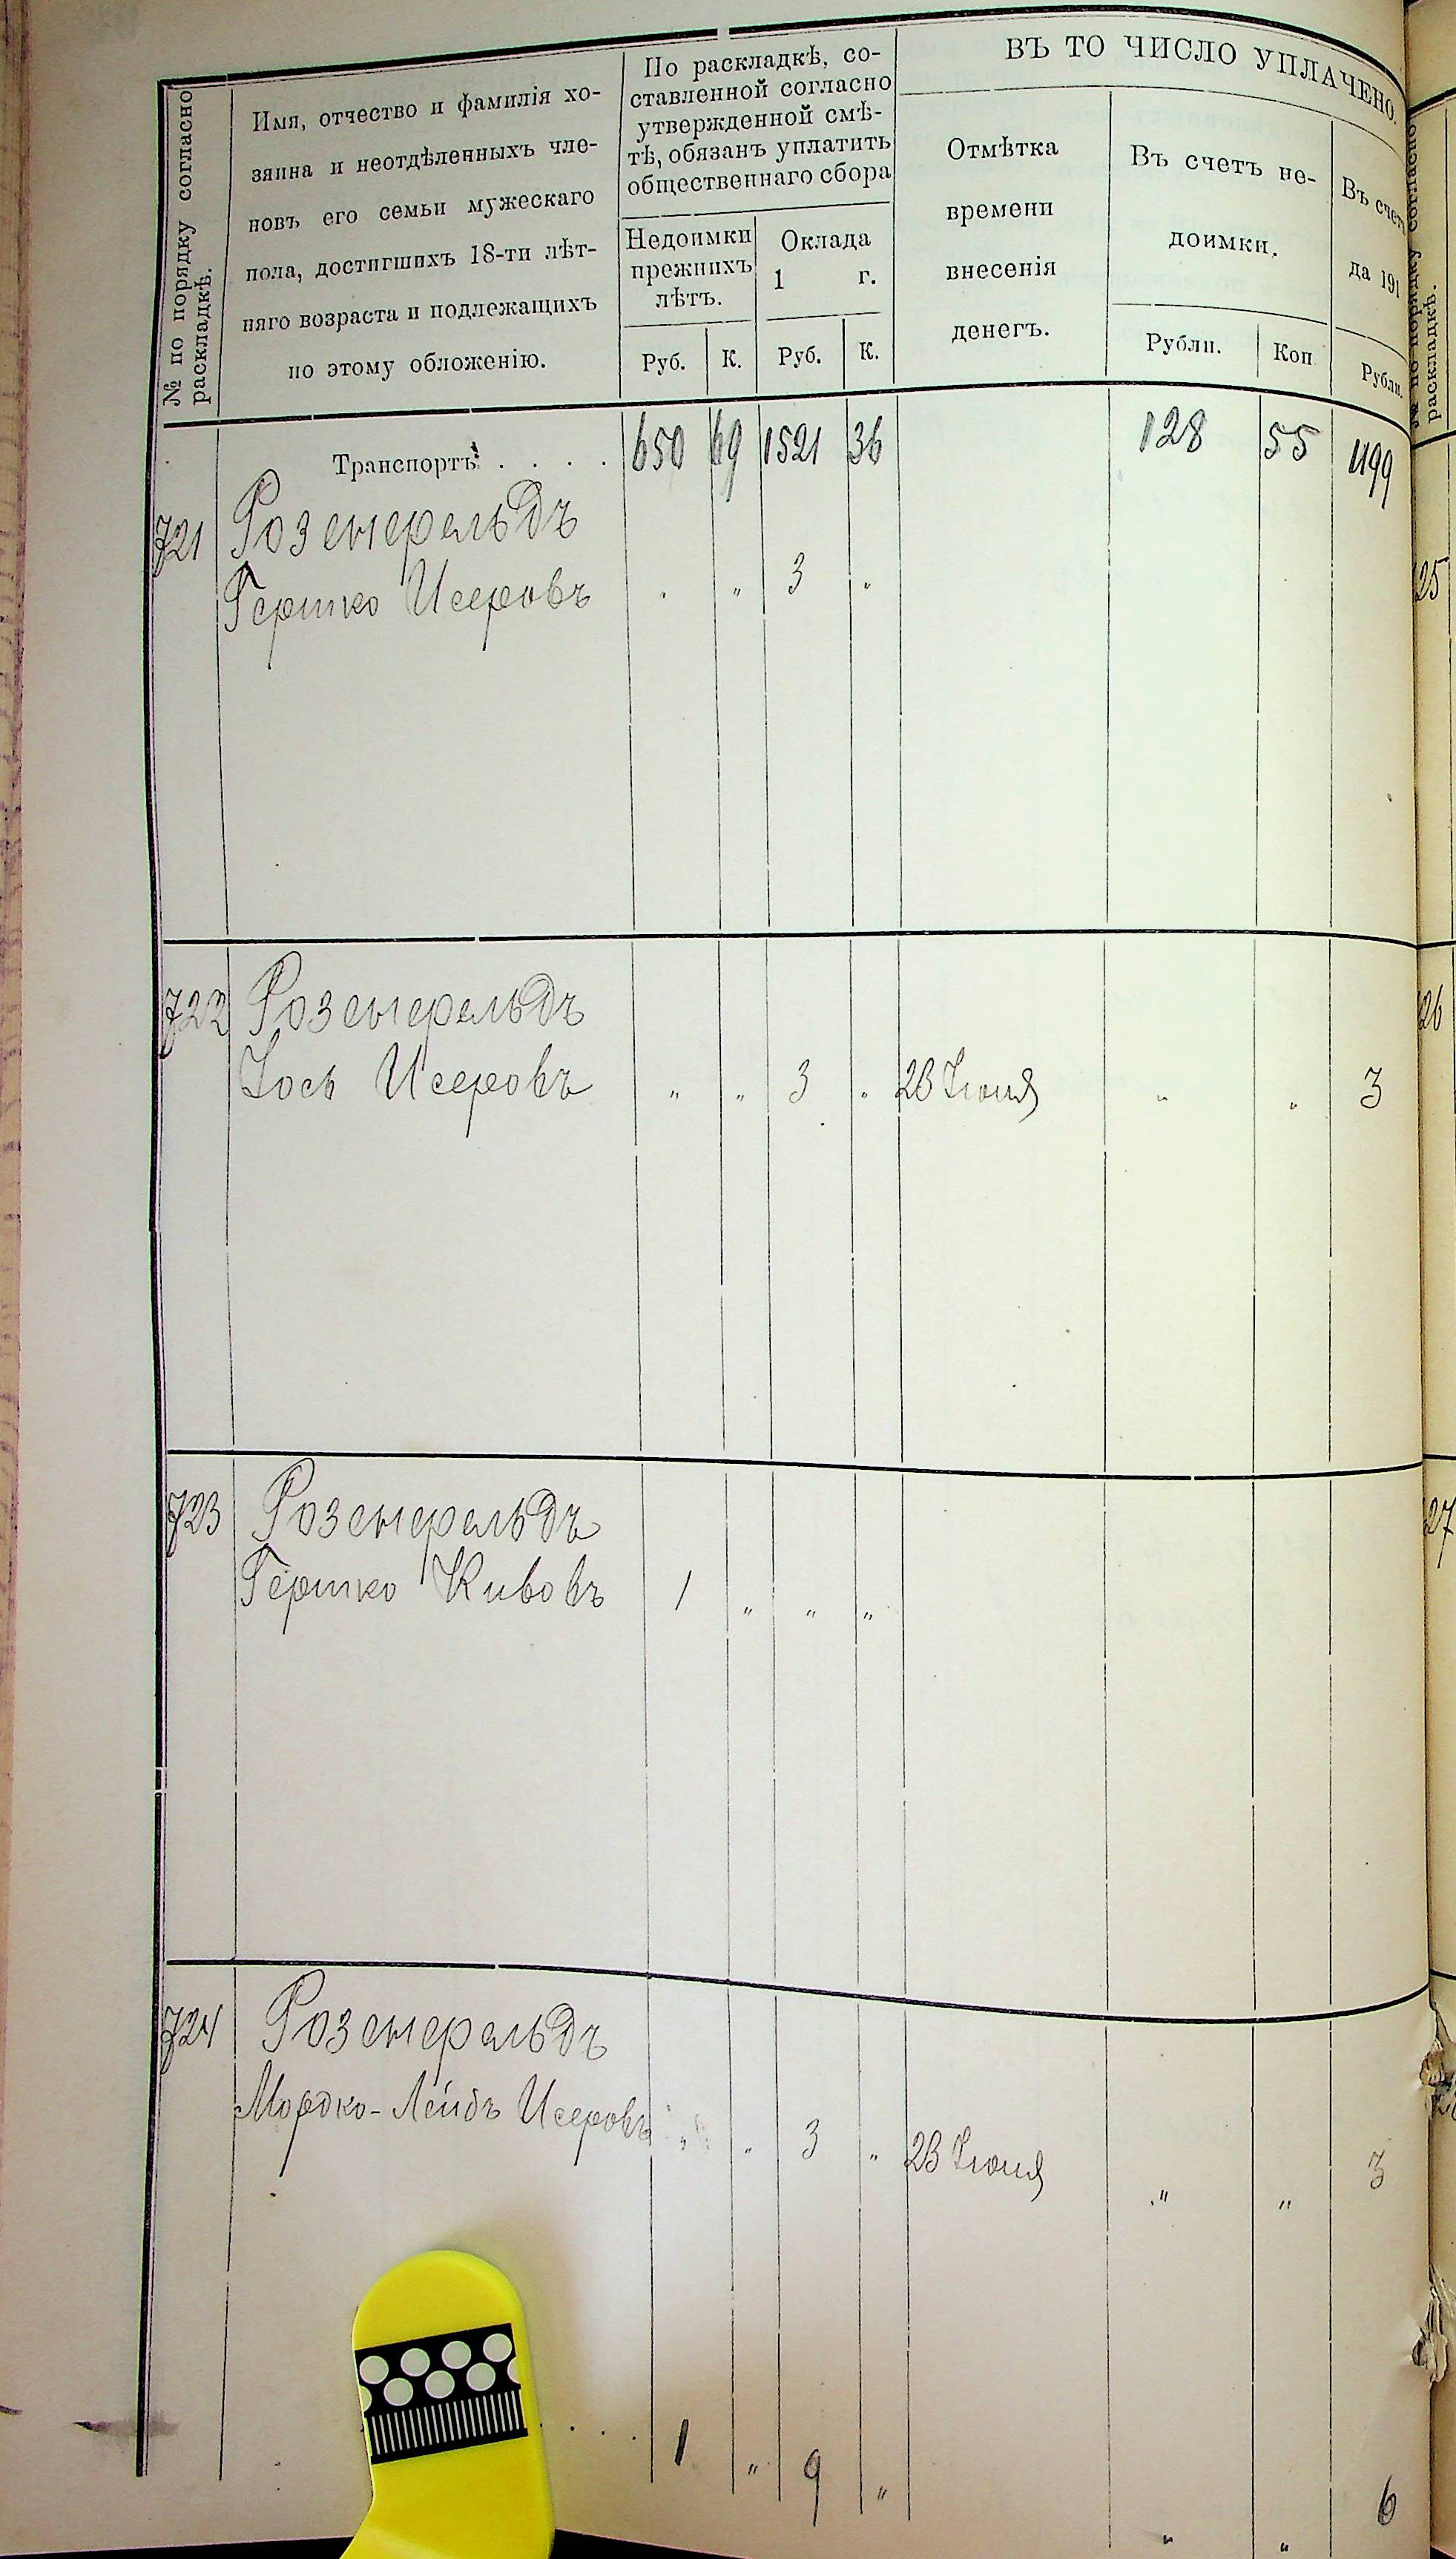 № по порядку согласно
раскладкѣ.
Имя, отчество и фамилія хо-
зяина и неотдѣленныхъ чле-
новъ его семьи мужескаго
пола, достигшихъ 18-ти лѣт-
няго возраста и подлежащихъ
по этому обложенію.
По раскладкѣ, со-
ставленной согласно
утвержденной смѣ-
тѣ, обязанъ уплатить
общественнаго сбора
Недоимки
прежнихъ
лѣтъ.
Оклада
1 г.
Руб. К. Руб. К.
ВЪ ТО ЧИСЛО УПЛАЧЕНО.
Отмѣтка
времени
внесенія
денегъ.
Въ счетъ не-
доимки.
Рубли. Коп
Въ счет
да 191
Рубли.
Транспортъ . . . . 650 69 1521 36 128 55 1199
721 Розенфельдъ
Гершко Исеровъ . " 3 "
722 Розенфельдъ
Іось Исеровъ " " 3 " 23 Іюня " " 3
723 Розенфельдъ
Гершко Кивовъ 1 " " "
724 Розенфельдъ
Мордко-Лейбъ Исеровъ " " 3 " 23 Іюня " " 3
. . . . 1 " 9 " " " 6
№ по порядку согласно
раскладкѣ.
25
26
27